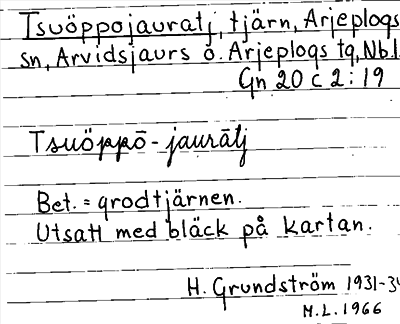 Tsuöppojauratj, tjärn, Arjeplogs
sn, Arvidsjaurs o. Arjeplogs tg, Nb.l.
Gn 20 c 2:19
Tsuöppō-jaurātj
Bet. = grodtjärnen.
Utsatt med bläck på kartan.
H. Grundström 1931-34
M.L. 1966